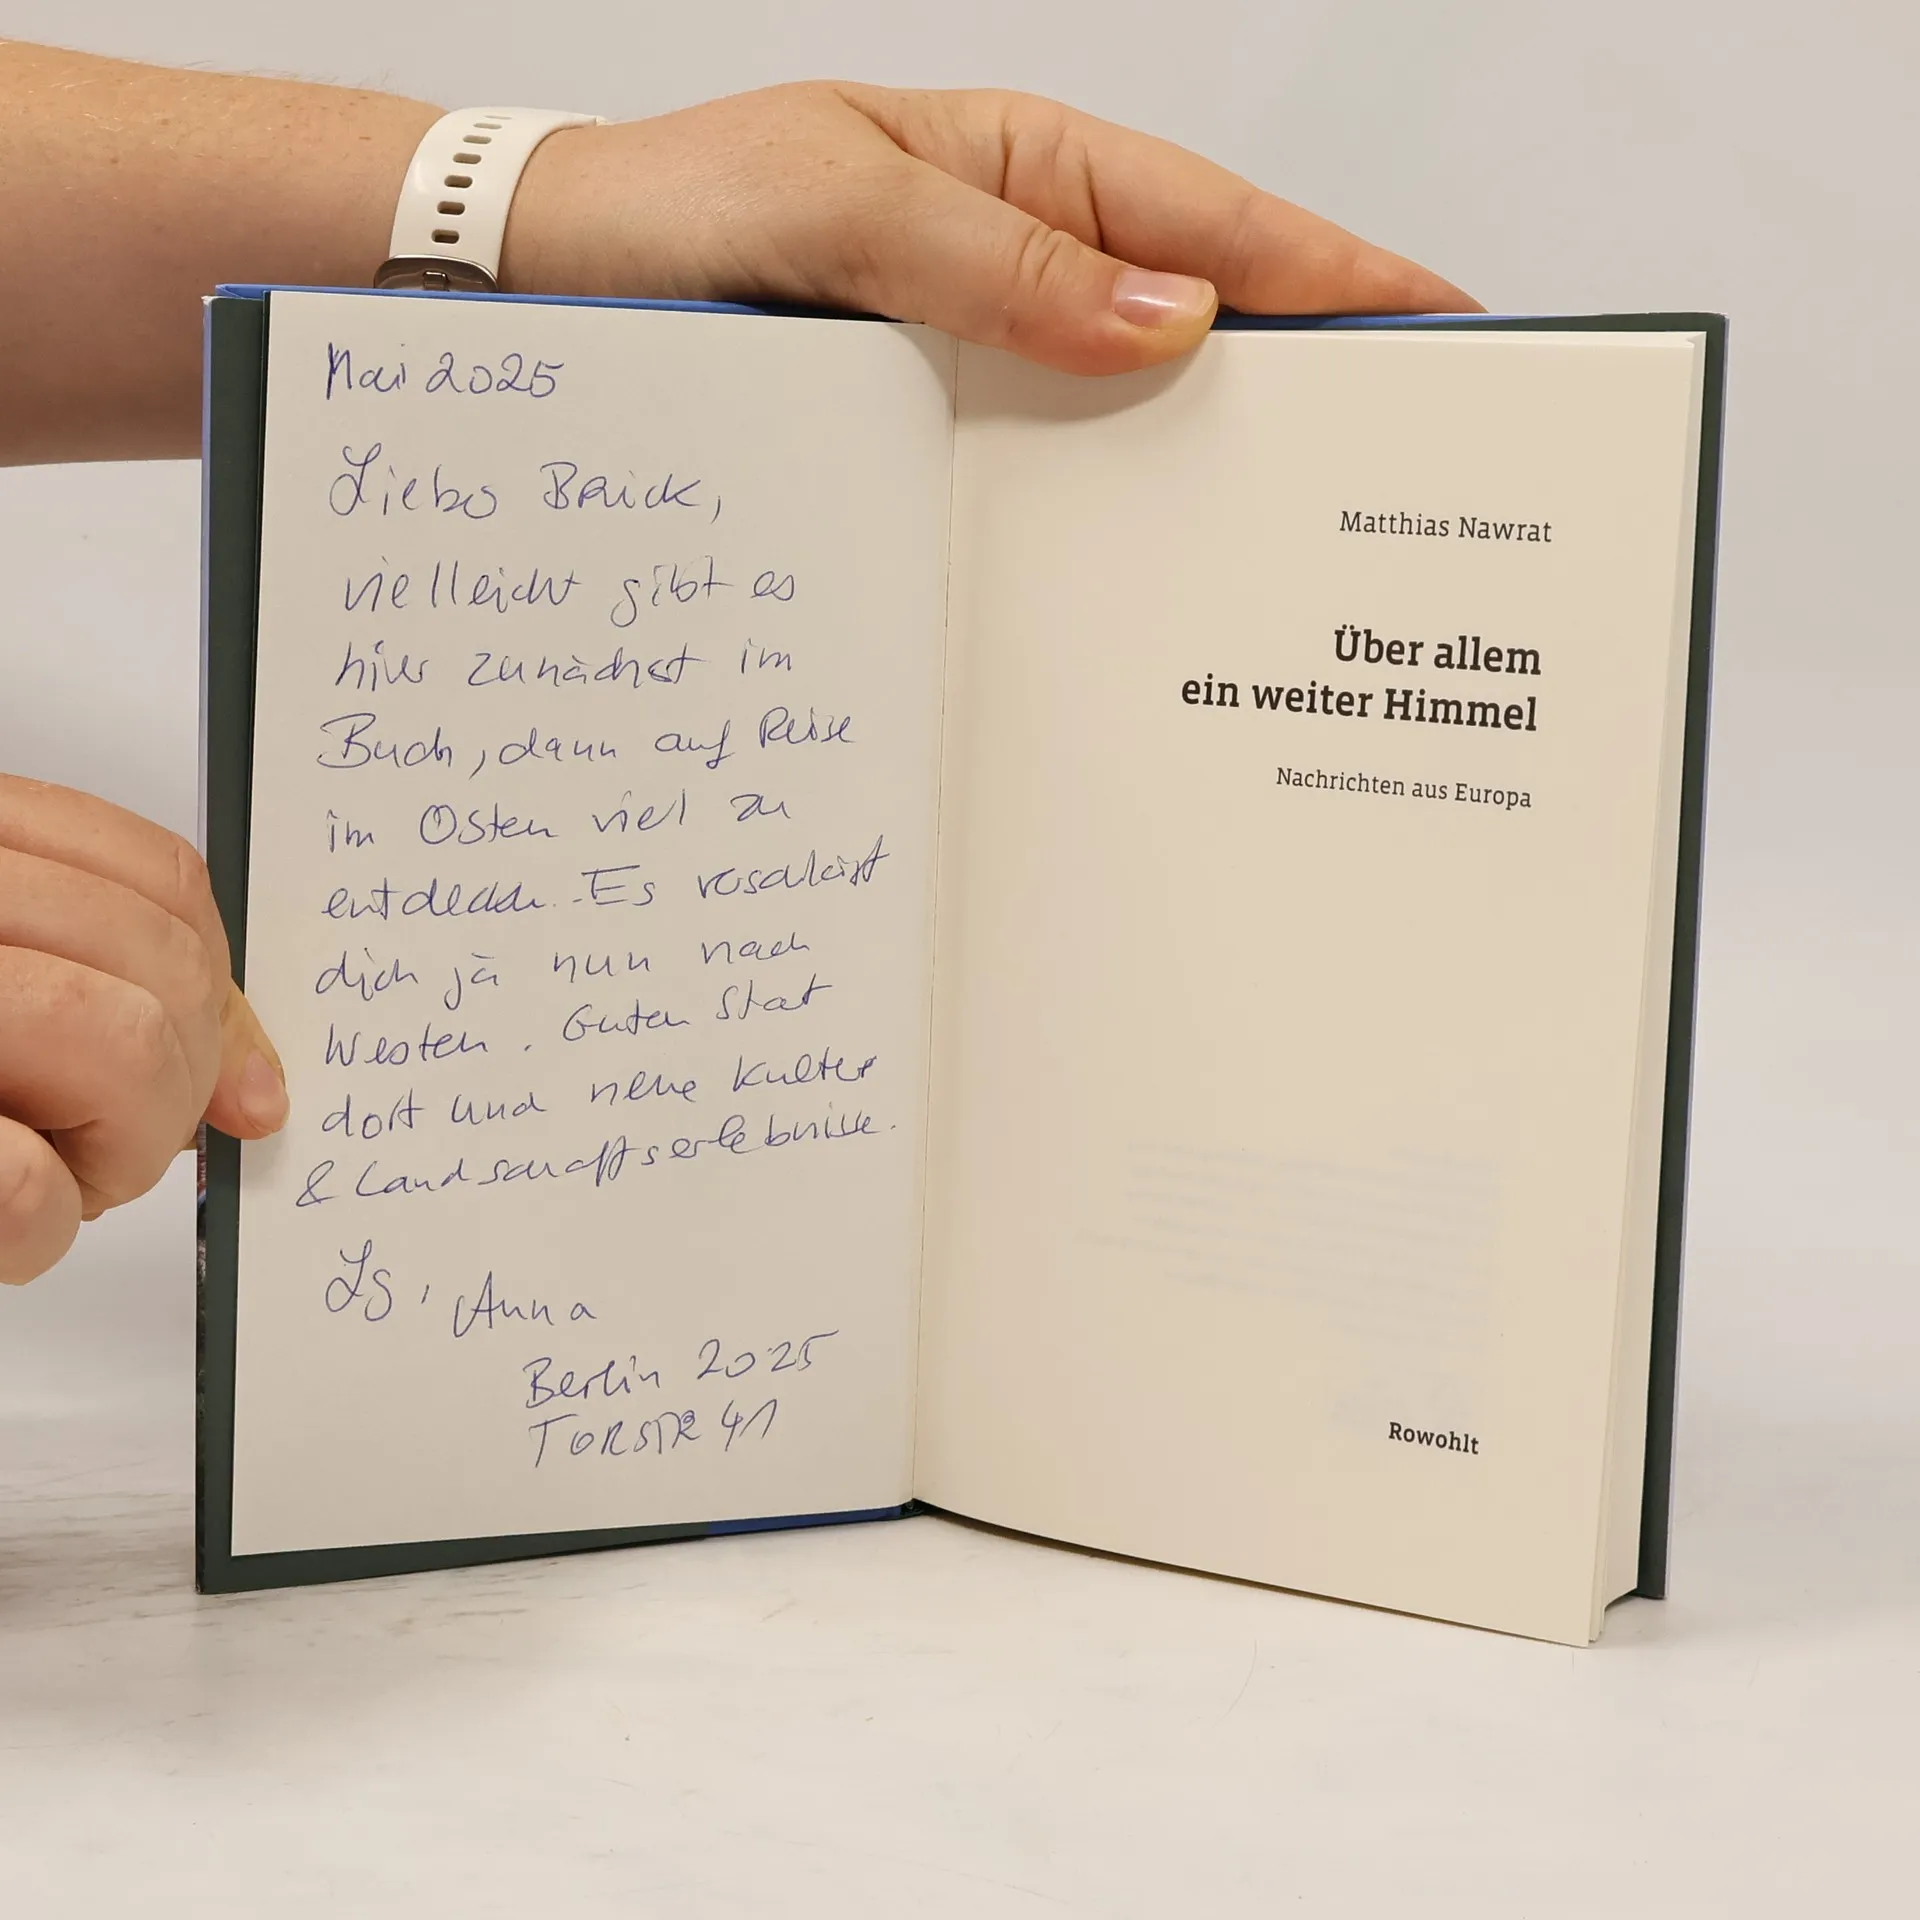 Mai 2025
Liebes Brick,
vielleicht gibt es
hier zunächst im
Buch, dann auf Reise
im Osten viel zu
entdecken. Es verschlägt
dich ja nun nach
Westen. Guten Start
dort und neue Kultur
& Landschaftserlebnisse.
LG, Anna
Berlin 2025
TORSTR 41
Matthias Nawrat
Über allem
ein weiter Himmel
Nachrichten aus Europa
Rowohlt